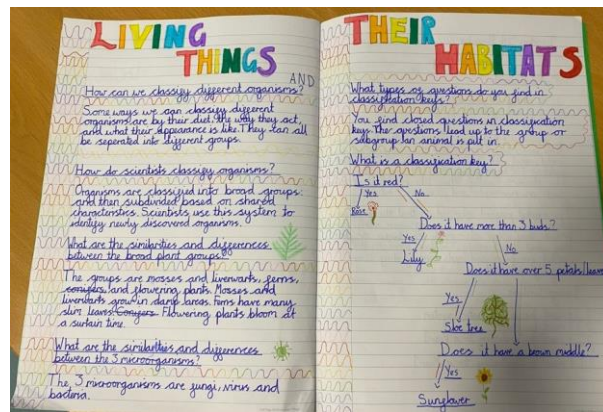 LIVING
THINGS
AND
How can we classify different organisms?
Some ways we can classify different
organisms are by their diet, the way they act,
and what their appearance is like. They can all
be seperated into different groups.
How do scientists classify organisms?
Organisms are classified into broad groups
and then subdivided based on shared
characteristics. Scientists use this system to
identify newly discovered organisms.
What are the similarities and differences
between the broad plant groups?
The groups are mosses and liverworts, ferns,
conifers, and flowering plants. Mosses and
liverworts grow in damp areas. Ferns have many
slim leaves. Conifers. Flowering plants bloom at
a surtain time.
What are the similarities and differences
between the 3 microorganisms?
The 3 microorganisms are fungi, virus and
bacteria.
THEIR
HABITATS
What types of questions do you find in
classification keys?
You find closed questions in classification
keys. The questions lead up to the group or
subgroup an animal is put in.
What is a classification key?
Is it red?
Yes No
Rose
Does it have more than 3 buds?
Yes
No
Lily
Does it have over 5 petals/leaves
Yes
Sloe tree
Does it have a brown middle?
Yes
Sunflower